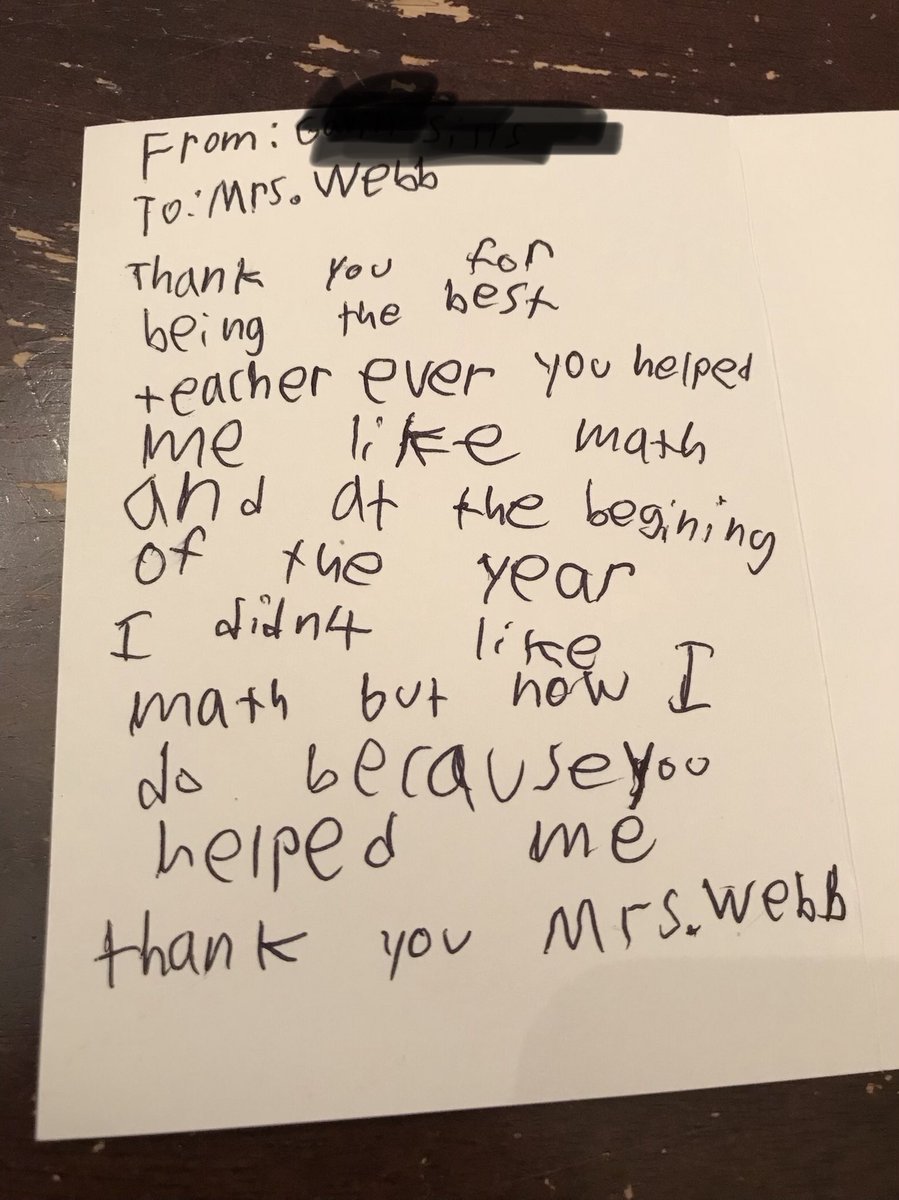 From:
To: Mrs. Webb
Thank you for
being the best
teacher ever you helped
me like math
and at the begining
of the year
I didn4 like
math but now I
do because you
helped me
thank you Mrs. Webb